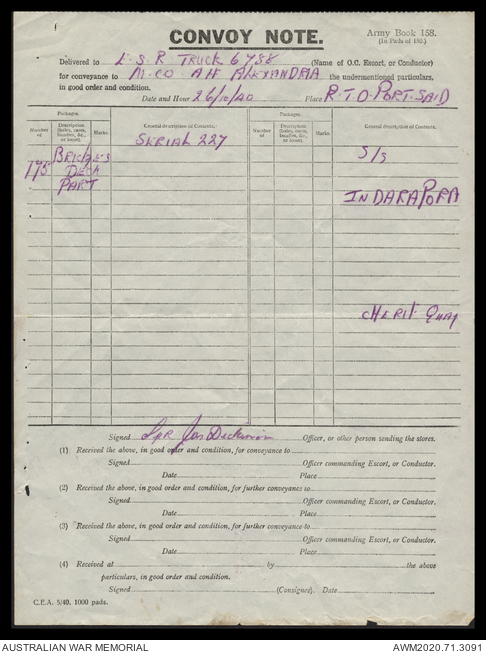 CONVOY NOTE.
Army Book 158.
(In Pads of 150.)
Delivered to E.S.R TRUCK 6788 (Name of O.C. Escort, or Conductor)
for conveyance to M.CO AIF ALEXANDRIA the undermentioned particulars,
in good order and condition.
Date and Hour 26/10/40 Place R.T.O. PORT. SAID
Packages.
Number of
Description (bales, cases, bundles, &c., or loose).
Marks.
General description of Contents.
Packages.
Number of
Description (bales, cases, bundles, &c., or loose).
Marks.
General description of Contents.
SERIAL 227
175 BRIDGES
DECK
PART
S/S
INDARAPORA
CHERIF QUAY
Signed Spr Jas Dickinson Officer, or other person sending the stores.
(1) Received the above, in good order and condition, for conveyance to
Signed Officer commanding Escort, or Conductor.
Date Place
(2) Received the above, in good order and condition, for further conveyance to
Signed Officer commanding Escort, or Conductor.
Date Place
(3) Received the above, in good order and condition, for further conveyance to
Signed Officer commanding Escort, or Conductor.
Date Place
(4) Received at by the above
particulars, in good order and condition.
Signed (Consignee). Date
C.E.A. 5/40. 1000 pads.
AUSTRALIAN WAR MEMORIAL
AWM2020.71.3091